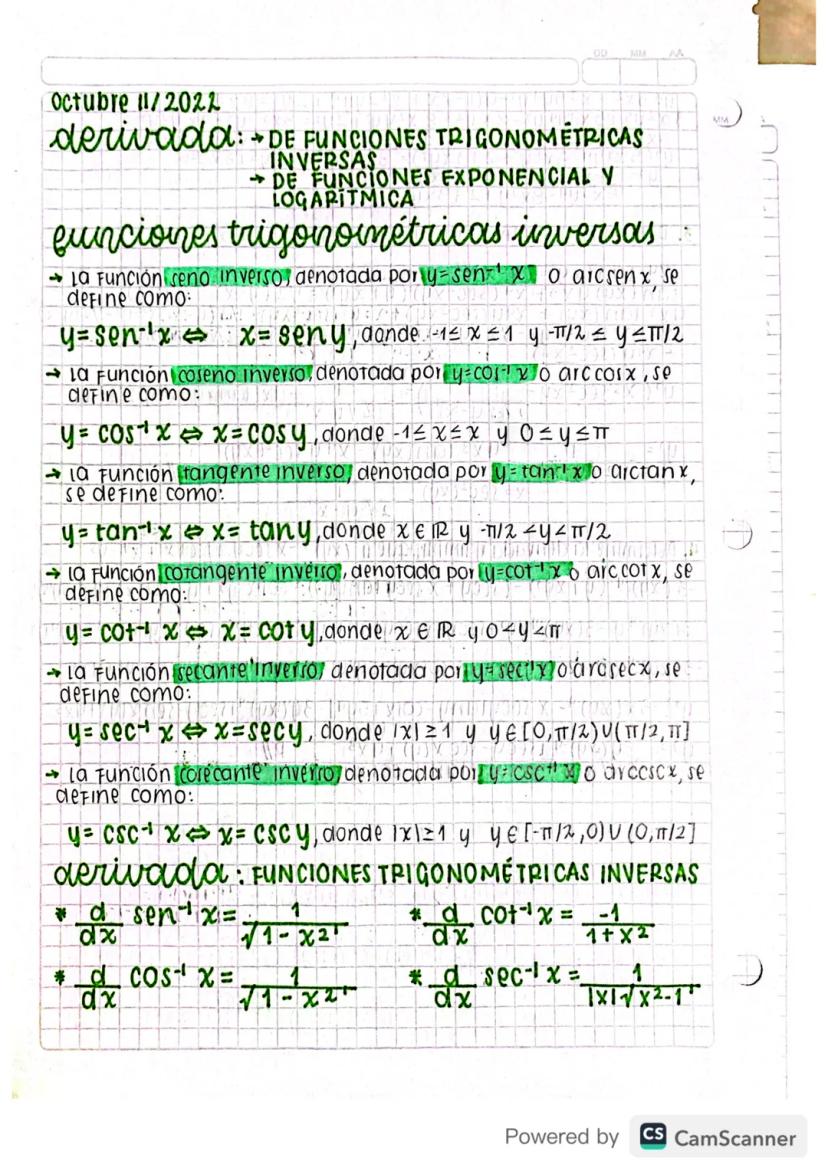 DD MM AA
Octubre 11/2022
MM
derivada: → DE FUNCIONES TRIGONOMÉTRICAS
INVERSAS
→ DE FUNCIONES EXPONENCIAL Y
LOGARÍTMICA
funciones trigonométricas inversas
→ La función seno inverso, denotada por y=sen⁻¹ x o arcsen x, se
define como:
y=sen⁻¹x ⇔ x=sen y, donde -1≤ x ≤1 y -π/2 ≤ y ≤π/2
→ La función coseno inverso, denotada por y=cos⁻¹ x o arc cosx, se
define como:
y= cos⁻¹ x ⇔ x=cos y, donde -1≤ x≤x y 0≤y≤π
→ La función tangente inverso, denotada por y=tan⁻¹ x o arctan x,
se define como:
y=tan⁻¹ x ⇔ x= tan y, donde x ∈ ℝ y -π/2 <y<π/2
→ La función cotangente inverso, denotada por y=cot⁻¹ x o arc cot x, se
define como:
y= cot⁻¹ x ⇔ x= cot y, donde x ∈ ℝ y 0<y<π
→ La función secante inverso, denotada por y=sec⁻¹ x o arcsec x, se
define como:
y= sec⁻¹ x ⇔ x=sec y, donde |x|≥1 y y∈[0,π/2)∪(π/2,π]
→ La función cosecante inverso, denotada por y=csc⁻¹ x o arccsc x, se
define como:
y= csc⁻¹ x ⇔ x= csc y, donde |x|≥1 y y∈[-π/2,0)∪(0,π/2]
derivada: FUNCIONES TRIGONOMÉTRICAS INVERSAS
* d/dx sen⁻¹ x= 1/√(1-x²) * d/dx cot⁻¹ x = -1/(1+x²)
* d/dx cos⁻¹ x= 1/√(1-x²) * d/dx sec⁻¹ x= 1/(|x|√(x²-1))
Powered by CS CamScanner